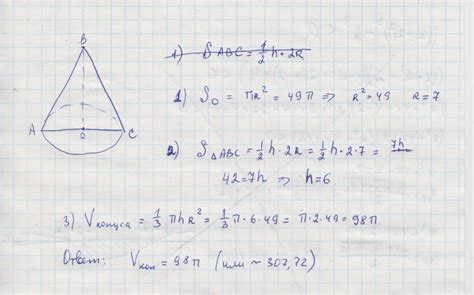 B
A
O
C
1) S ABC = 1/2 h · 2R
1) S₀ = πR² = 49π ⇒ R² = 49 R = 7
2) S△ABC = 1/2 h · 2R = 1/2 h · 2 · 7 = 7h
42 = 7h ⇒ h = 6
3) Vконуса = 1/3 πhR² = 1/3 π · 6 · 49 = π · 2 · 49 = 98π.
Ответ: Vкон = 98π (или ~ 307,72)